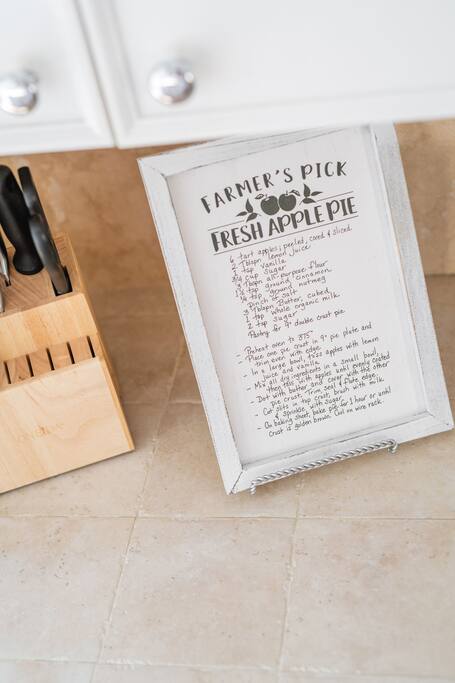 FARMER'S PICK
FRESH APPLE PIE
6 tart apples; peeled, cored & sliced
2 Tblspn lemon juice
2 tsp vanilla
3/4 cup sugar
Tblspn all-purpose flour
tsp ground cinnamon
1/4 tsp ground nutmeg
Pinch of salt
3 Tblspn Butter, cubed
1 tsp whole organic milk
2 tsp sugar
Pastry for 9" double crust pie
- Preheat oven to 375°
- Place one pie crust in 9" pie plate and
trim even with edge.
- In a large bowl, toss apples with lemon
juice and vanilla.
- Mix all dry ingredients in a small bowl,
then toss with apples until evenly coated
- Dot with butter and cover with the other
pie crust. Trim, seal & flute edge.
- Cut slits in top crust, brush with milk
& sprinkle with sugar
- On baking sheet, bake pie for 1 hour or until
crust is golden brown. Cool on wire rack.